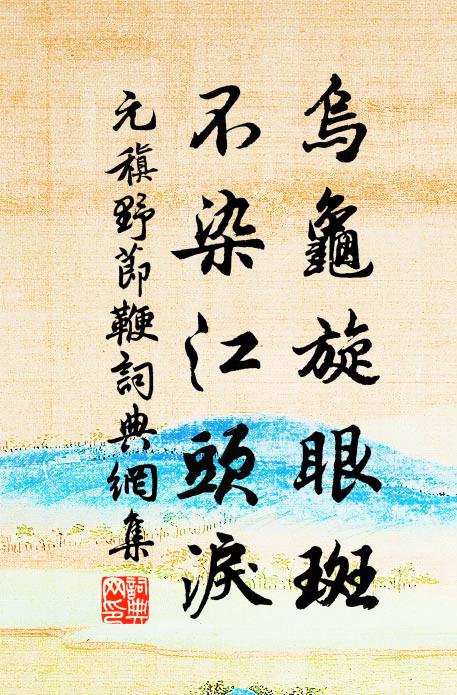 烏龜旋眼斑
不染江頭淚
元稹野節鞭詞典網集
詞典